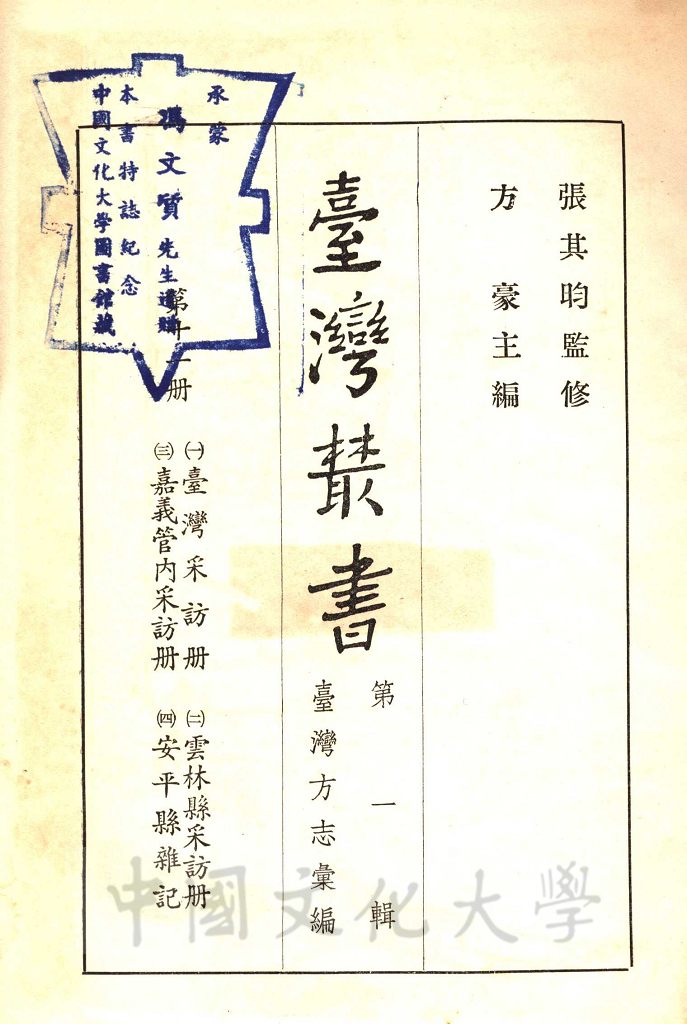 張其昀監修
方豪主編
臺灣叢書
第一輯
臺灣方志彙編
第十一册
㈠臺灣采訪册
㈡雲林縣采訪册
㈢嘉義管內采訪册
㈣安平縣雜記
承蒙
馮文質先生
本書特誌紀念
中國文化大學圖書館藏
中國文化大學